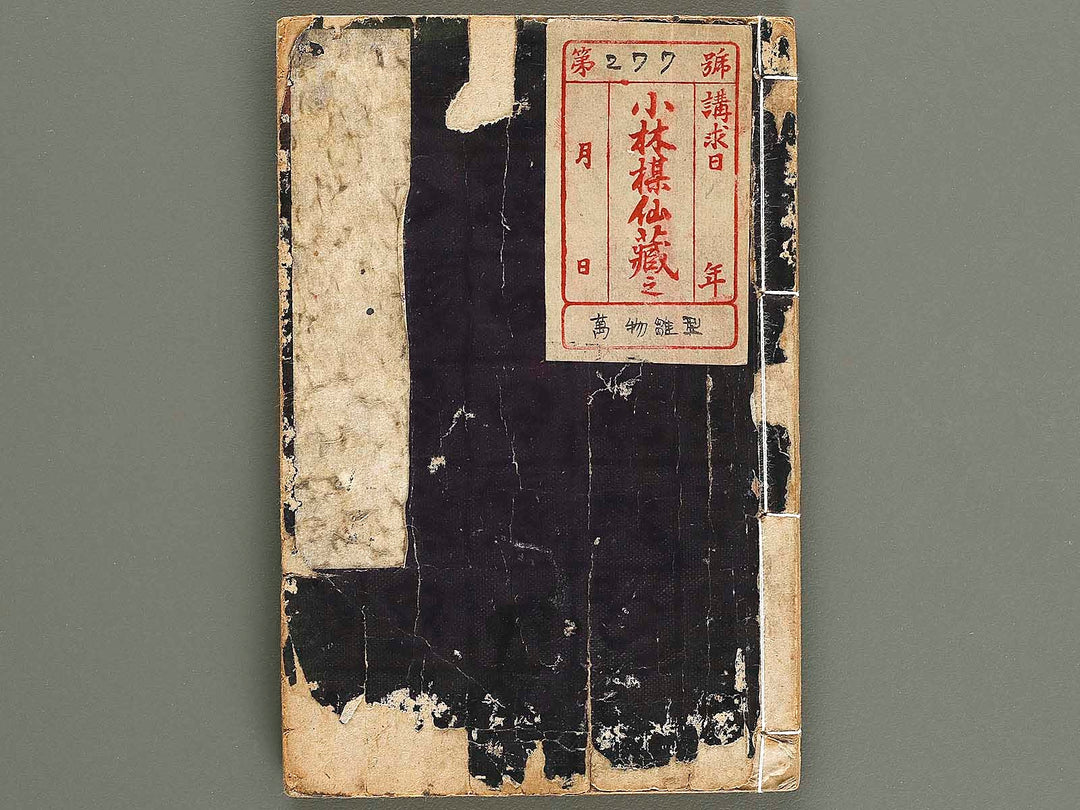 第277號
講求日
年
小林楳仙藏之
月
日
萬物雛型